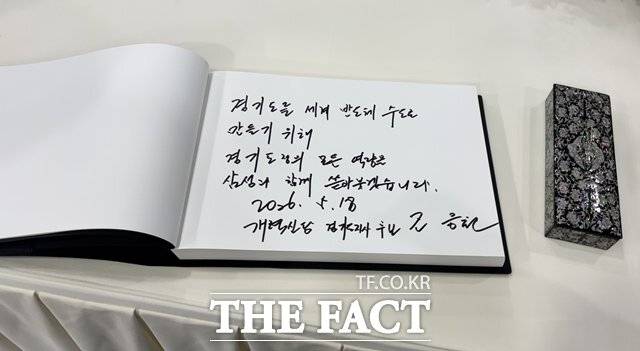 경기도를 세계 반도체 수도로
만들기 위해
경기도정의 모든 역량을
삼성과 함께 쏟아붓겠습니다.
2026. 5. 18
개혁신당 경기도지사 후보 조응천
TF.CO.KR
THE FACT